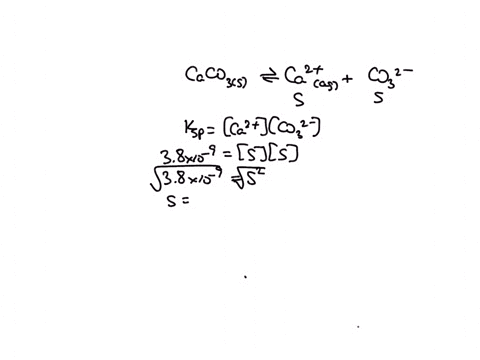 CaCO₃(s) ⇌ Ca²⁺(aq) + CO₃²⁻
S S
Ksp = [Ca²⁺][CO₃²⁻]
3.8×10⁻⁹ = [S][S]
√3.8×10⁻⁹ = √S²
S =